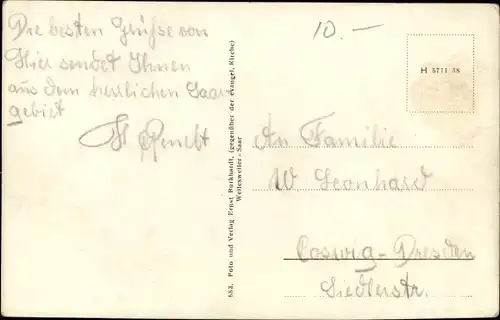 Die besten Grüße von
Hier sendet Ihnen
aus dem herrlichen Saar-
gebiet
10.—
H 5771 38
An Familie
W Leonhard
Coswig-Dresden
Siedlerstr.
553. Foto und Verlag Ernst Burkhardt, (gegenüber der evangel. Kirche)
Wellesweiler-Saar